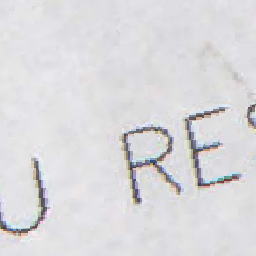 U RES